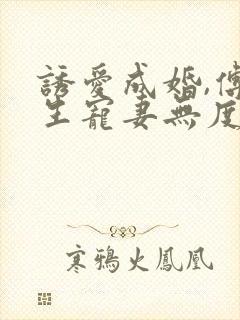 誘愛成婚,傅
生寵妻無度
寒鴉火鳳凰